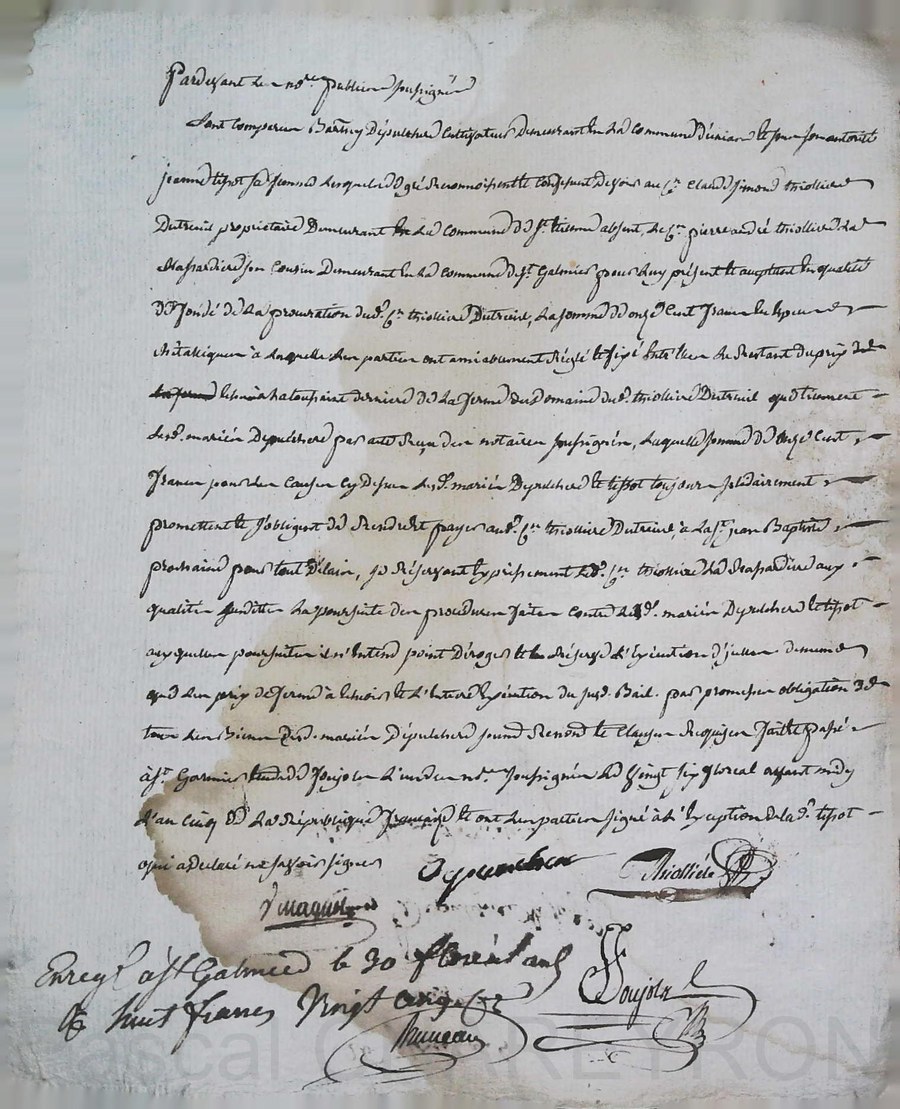 Pardevant les nores publics soussignés
Sont comparus Barthey Dépulchere cultivateur demeurant en la commune d'aveize et sous son autorité
jeanne tissot sa femme lesquels de gré reconnoissent et confessent devoir au Cn. Claude simond thiollière
Dutreuil propriétaire demeurant en la commune de St. etienne absent, le Cn. pierre andré thiollière de la
son cousin demeurant en la commune de St. Galmier pour luy présent et acceptant en qualité
de fondé de la procuration dud. Cn. thiolliere Dutreuil, la somme de onze cent francs en espèces
métalliques à laquelle les parties ont amiablement réglé et fixé entr'elles le restant du prix de
derniere de la ferme du domaine dud. thiolliere Dutreuil que tiennent
lesd. mariés Depulchere par acte reçu des notaires soussignés, laquelle somme de onze cent
francs pour les causes cy dessus lesd. mariés Depulchere et tissot toujours solidairement
promettent et s'obligent de rendre et payer aud. Cn. thiolliere Dutreuil, à la St. jean Baptiste
prochaine pour tout délais, se réservant expressement led. Cn. thiolliere de la aux
qualités susdittes la poursuite des procedures faites contre lesd. mariés Depulchere et tissot
auxquelles poursuites il n'entend point déroger et se réserve l'exécution d'icelles de même
que les prix de ferme à echoir et l'entiere exécution du susd. Bail. par promesses obligation de
tous les Biens desd. mariés Dépulchere soumis renoncé et clauses requises fait et passé
à St. Garmier étude de Poujols l'un des nores. soussignés le vingt six floreal avant midy
L'an cinq de La République française et ont les parties signé à l'exception de lad. tissot
qui a declaré ne savoir signer
Depeuchere Thiolliére
Enregé à St Galmier le 30 floréal an 5
Rç huit francs vingt cinq c
Poujols